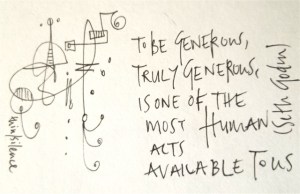 TO BE GENEROUS,
TRULY GENEROUS,
IS ONE OF THE
MOST HUMAN
ACTS
AVAILABLE TO US
(Seth Godin)
thinkilence